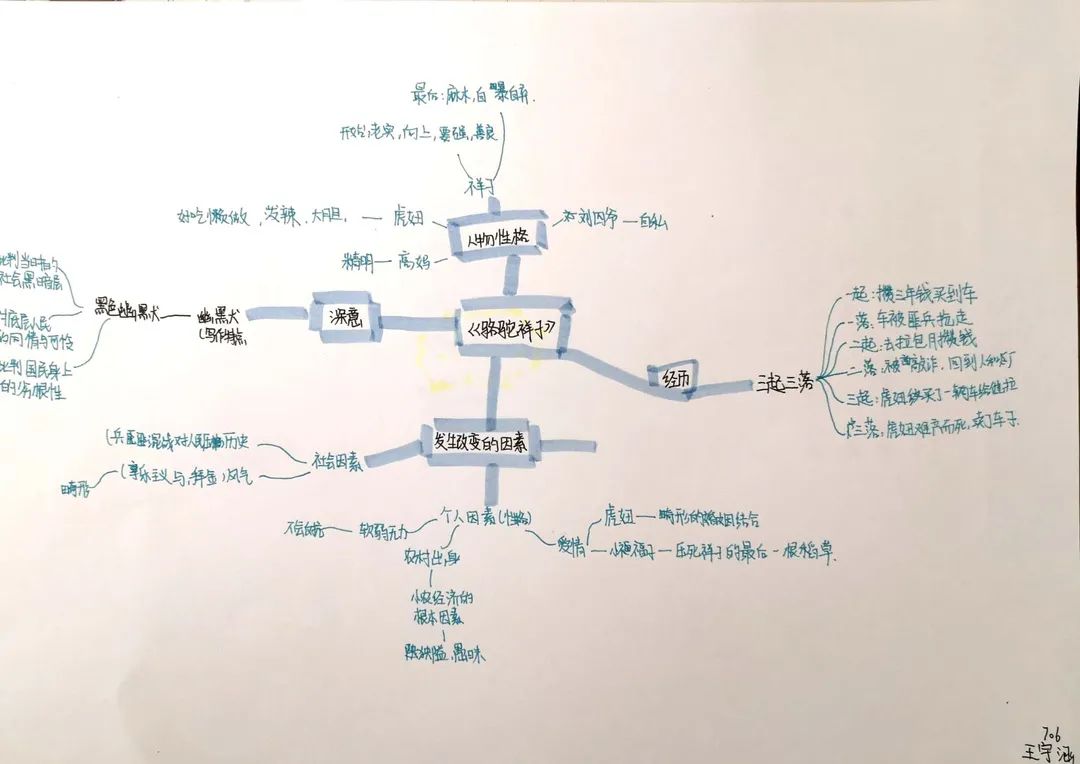 最后：麻木，自暴自弃.
开始：老实，向上，要强，善良
祥子
好吃懒做、泼辣、大胆. — 虎妞
刘四爷 — 自私
人物性格
精明 — 高妈
批判当时的
社会黑暗
黑色幽默 — 幽默
(写作特点
深意
《骆驼祥子》
对底层人民
的同情与可怜
批判国民身上
的劣根性
经历
三起三落
一起：攒三年钱买到车
一落：车被匪兵拉走
二起：去拉包月攒钱
二落：被敲诈，回到人和车厂
三起：虎妞给买了一辆车给他拉
三落：虎妞难产而死，卖了车子
发生改变的因素
社会因素
历史
(享乐主义与，拜金)风气
畸形
个人因素(性格)
软弱无力
农村出身
小农经济的
根本因素
愚昧
爱情
虎妞 — 畸形的婚姻结合
小福子 — 压死祥子的最后一根稻草.
706
王宇涵